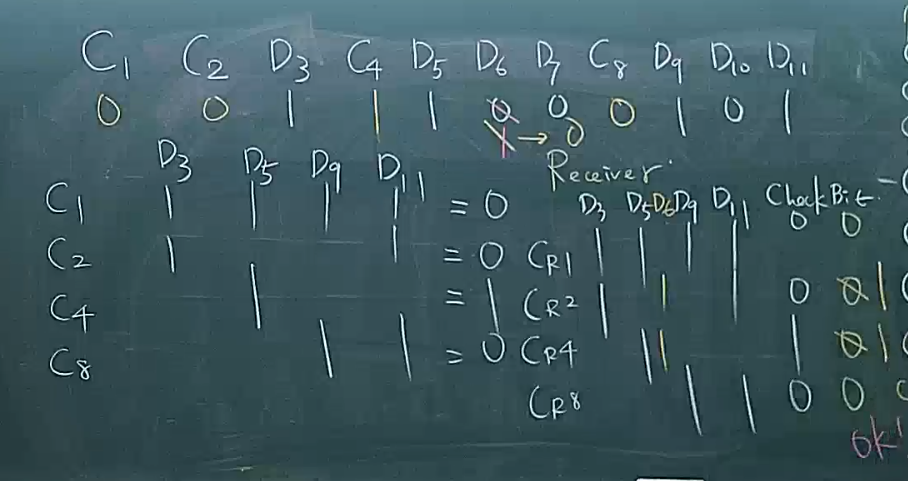 C1 C2 D3 C4 D5 D6 D7 C8 D9 D10 D11
0 0 1 1 1 0 0 0 1 0 1
1 → 0
D3 D5 D9 D11
C1 1 1 1 1 = 0
C2 1 1 = 0
C4 1 = 1
C8 1 1 = 0
Receiver
D3 D5 D6 D9 D11 Check Bit
CR1 1 1 1 1 0 0
CR2 1 1 1 0 0 1
CR4 1 1 1 0 1
CR8 1 1 0 0
ok!